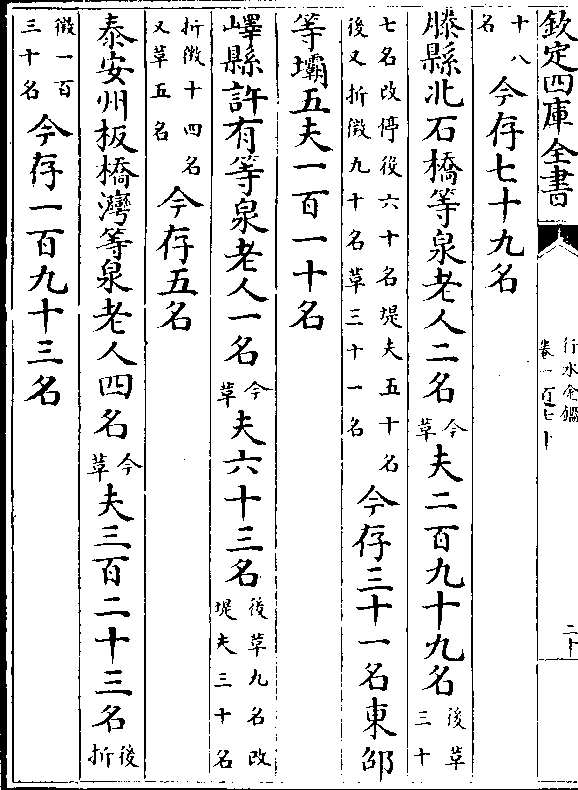 欽定四庫全書
行水金鑑
卷一百七十
二十
十八名今存七十九名
滕縣北石橋等泉老人二名今草夫二百九十九名後草三十
七名改停後六十名堤夫五十名後又折徵九十名草三十一名今存三十一名東邵
等壩五夫一百一十名
嶧縣許有等泉老人一名今草夫六十三名後草九名改堤夫三十名
折徵十四名又草五名今存五名
泰安州板橋灣等泉老人四名今草夫三百二十三名後折
徵一百三十名今存一百九十三名